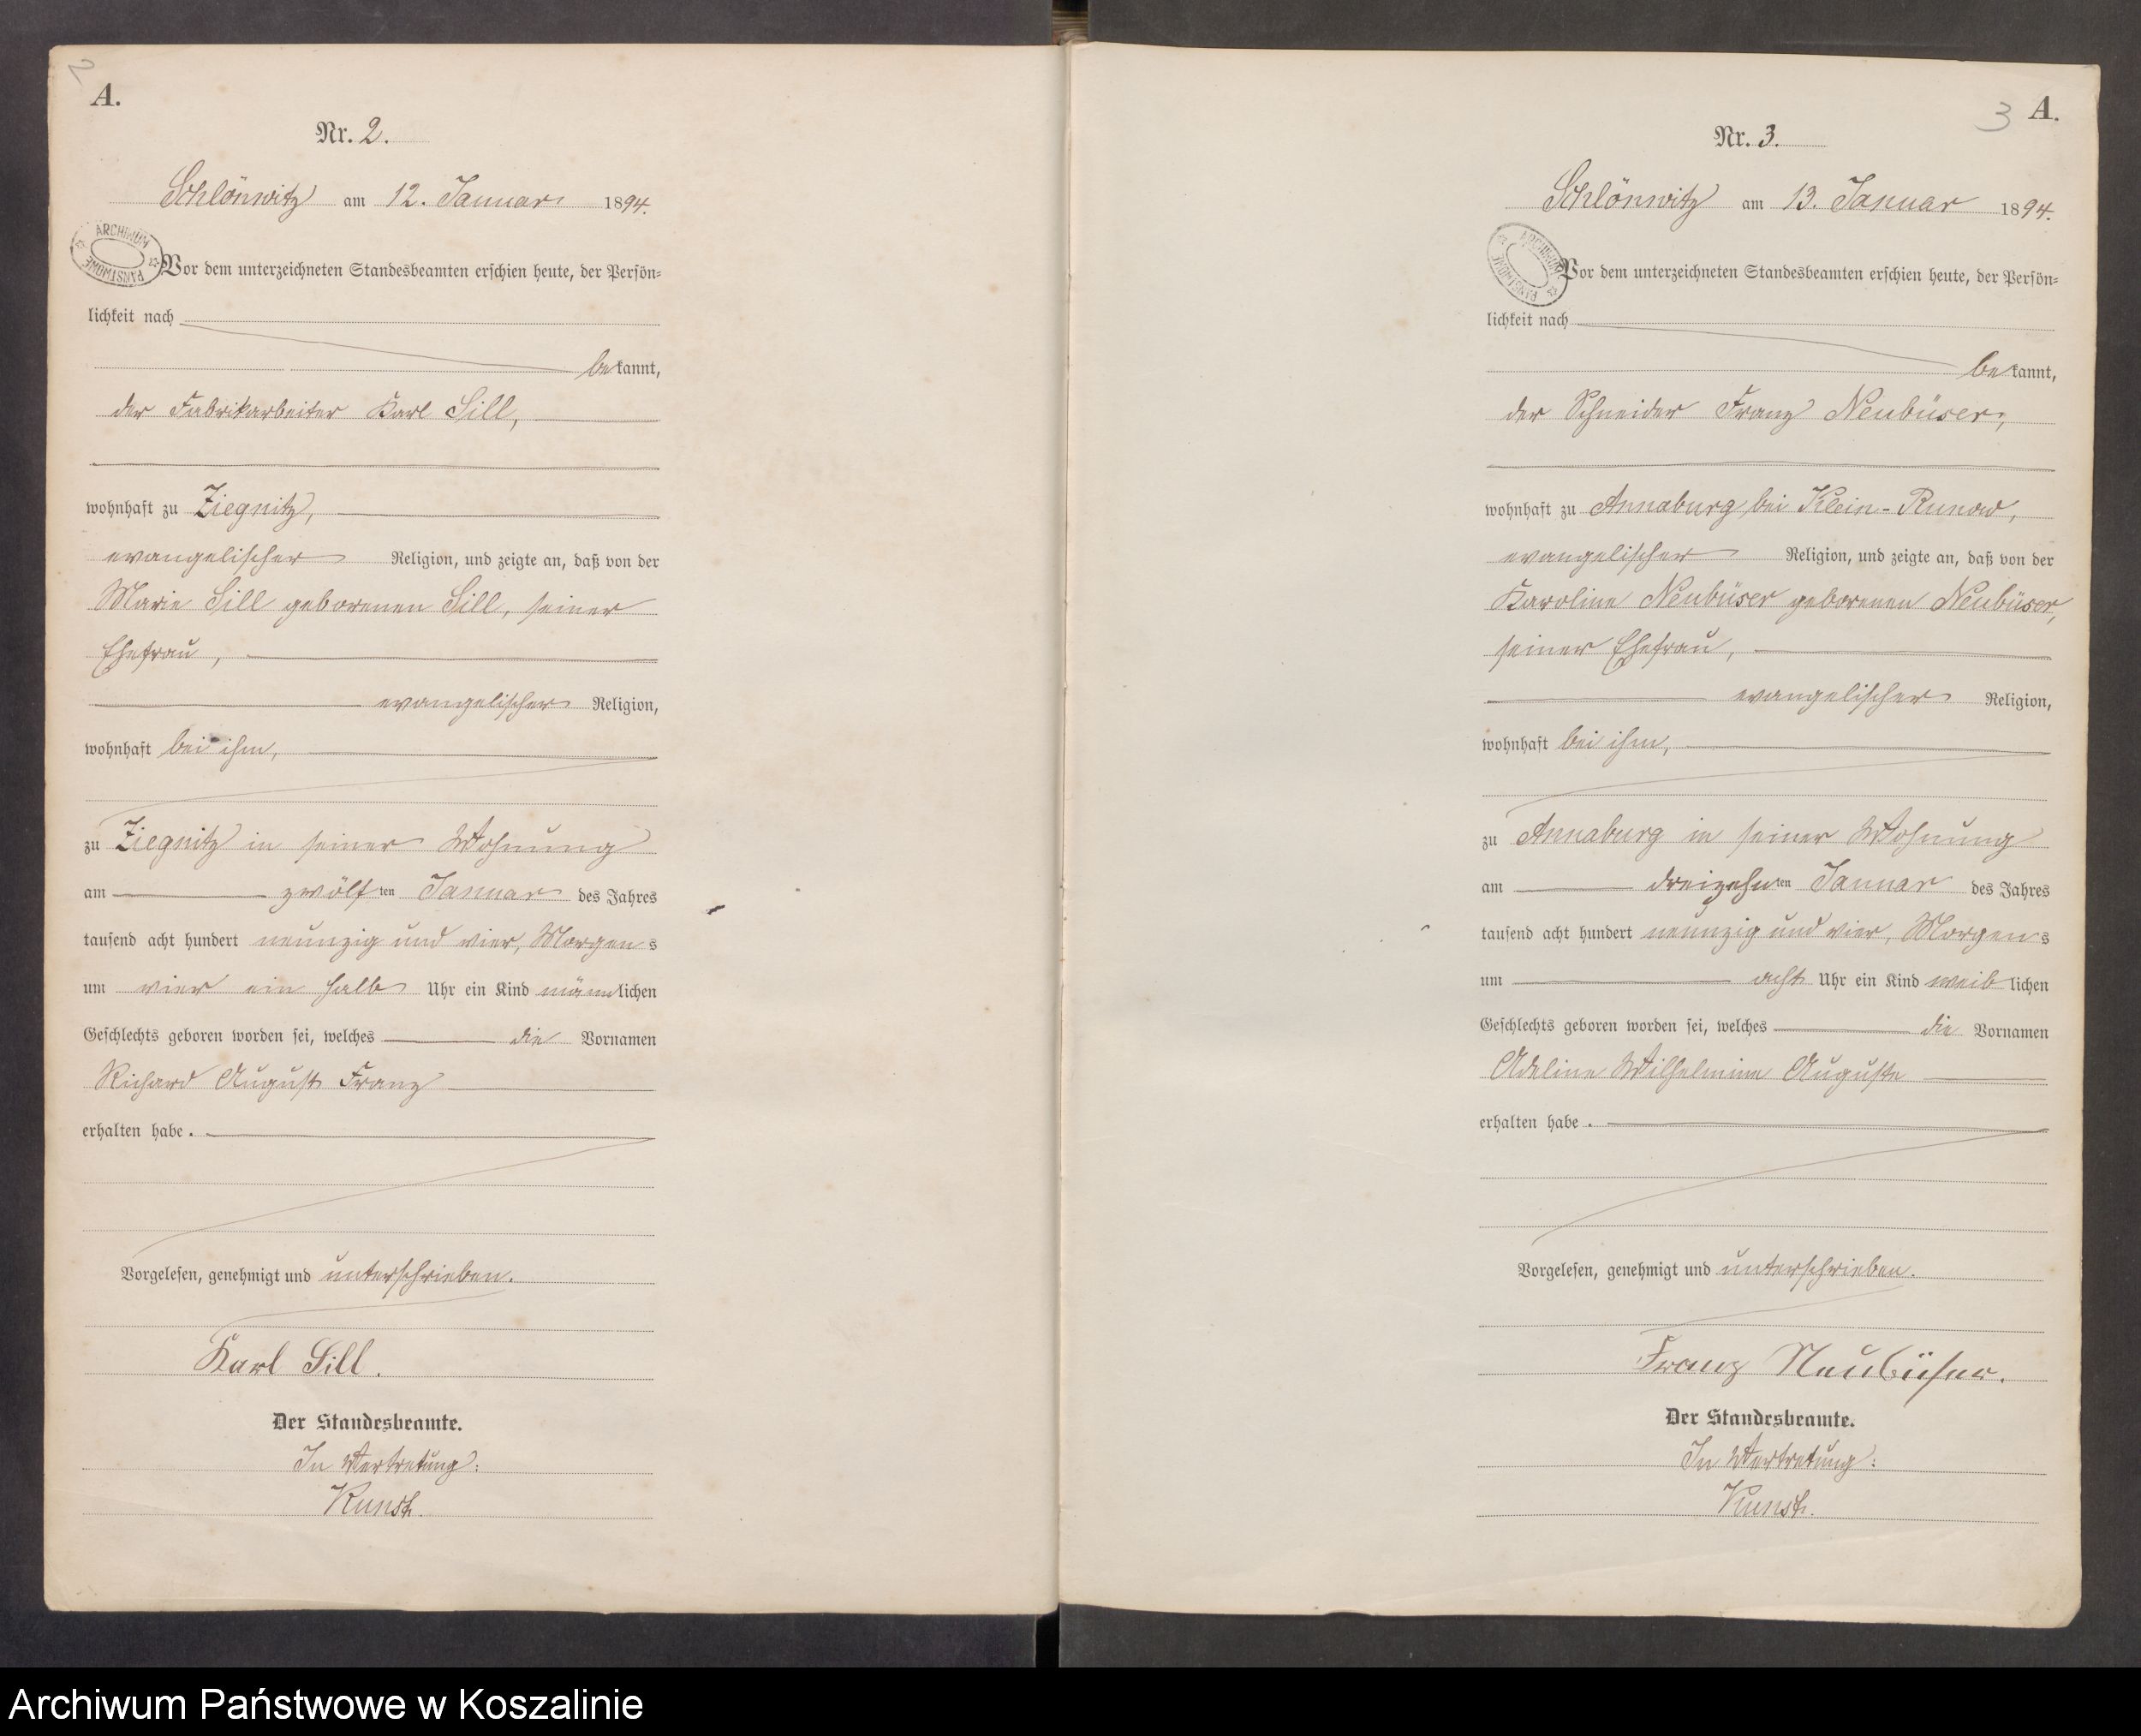 2
A.
Nr. 2.
Schlönwitz am 12. Januar 1894.
ARCHIWUM PAŃSTWOWE
Vor dem unterzeichneten Standesbeamten erschien heute, der Persön=
lichkeit nach
bekannt,
der Fabrikarbeiter Karl Sill,
wohnhaft zu Ziegnitz,
evangelischer Religion, und zeigte an, daß von der
Marie Sill geborenen Sill, seiner
Ehefrau,
evangelischer Religion,
wohnhaft bei ihm,
zu Ziegnitz in seiner Wohnung
am zwölften Januar des Jahres
tausend acht hundert neunzig und vier, Morgens
um vier ein halb Uhr ein Kind männlichen
Geschlechts geboren worden sei, welches die Vornamen
Richard August Franz
erhalten habe.
Vorgelesen, genehmigt und unterschrieben.
Karl Sill.
Der Standesbeamte.
In Vertretung:
Kunst.
3 A.
Nr. 3.
Schlönwitz am 13. Januar 1894.
ARCHIWUM PAŃSTWOWE
Vor dem unterzeichneten Standesbeamten erschien heute, der Persön=
lichkeit nach
bekannt,
der Schneider Franz Neubüser,
wohnhaft zu Annaburg bei Klein-Runow,
evangelischer Religion, und zeigte an, daß von der
Karoline Neubüser geborenen Neubüser,
seiner Ehefrau,
evangelischer Religion,
wohnhaft bei ihm,
zu Annaburg in seiner Wohnung
am dreizehnten Januar des Jahres
tausend acht hundert neunzig und vier, Morgens
um acht Uhr ein Kind weiblichen
Geschlechts geboren worden sei, welches die Vornamen
Adeline Wilhelmine Auguste
erhalten habe.
Vorgelesen, genehmigt und unterschrieben.
Franz Neubüser.
Der Standesbeamte.
In Vertretung:
Kunst.
Archiwum Państwowe w Koszalinie